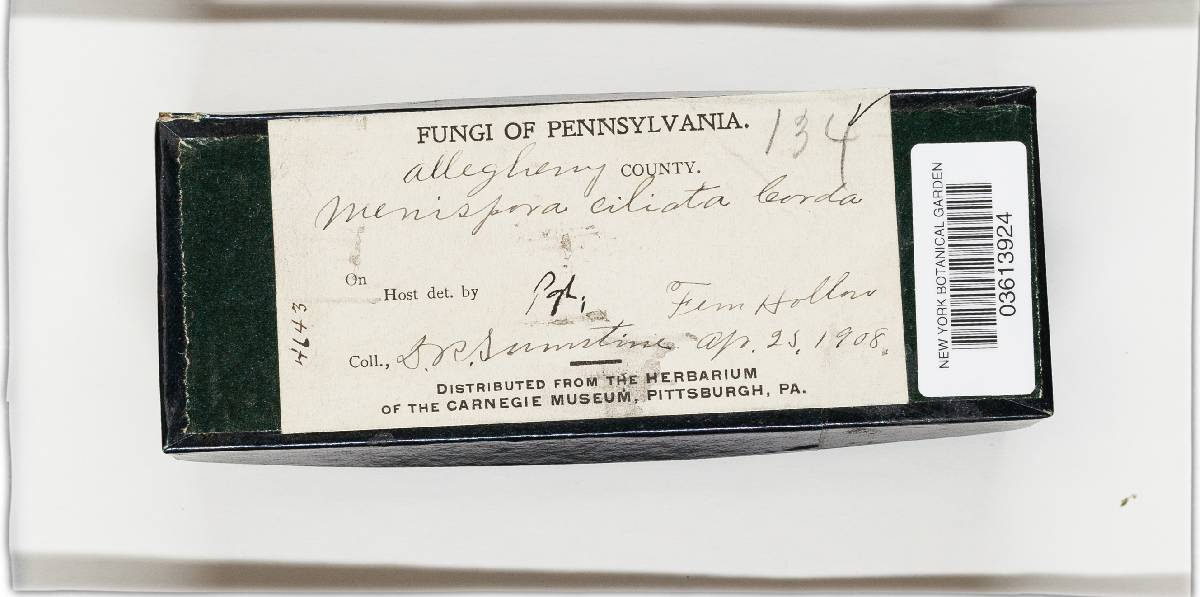 FUNGI OF PENNSYLVANIA.
134
Allegheny COUNTY.
Menispora ciliata Corda
On
Host det. by
Pgh, Fern Hollow
Coll., D.R. Sumstine Ap. 25, 1908.
DISTRIBUTED FROM THE HERBARIUM
OF THE CARNEGIE MUSEUM, PITTSBURGH, PA.
4643
NEW YORK BOTANICAL GARDEN
03613924